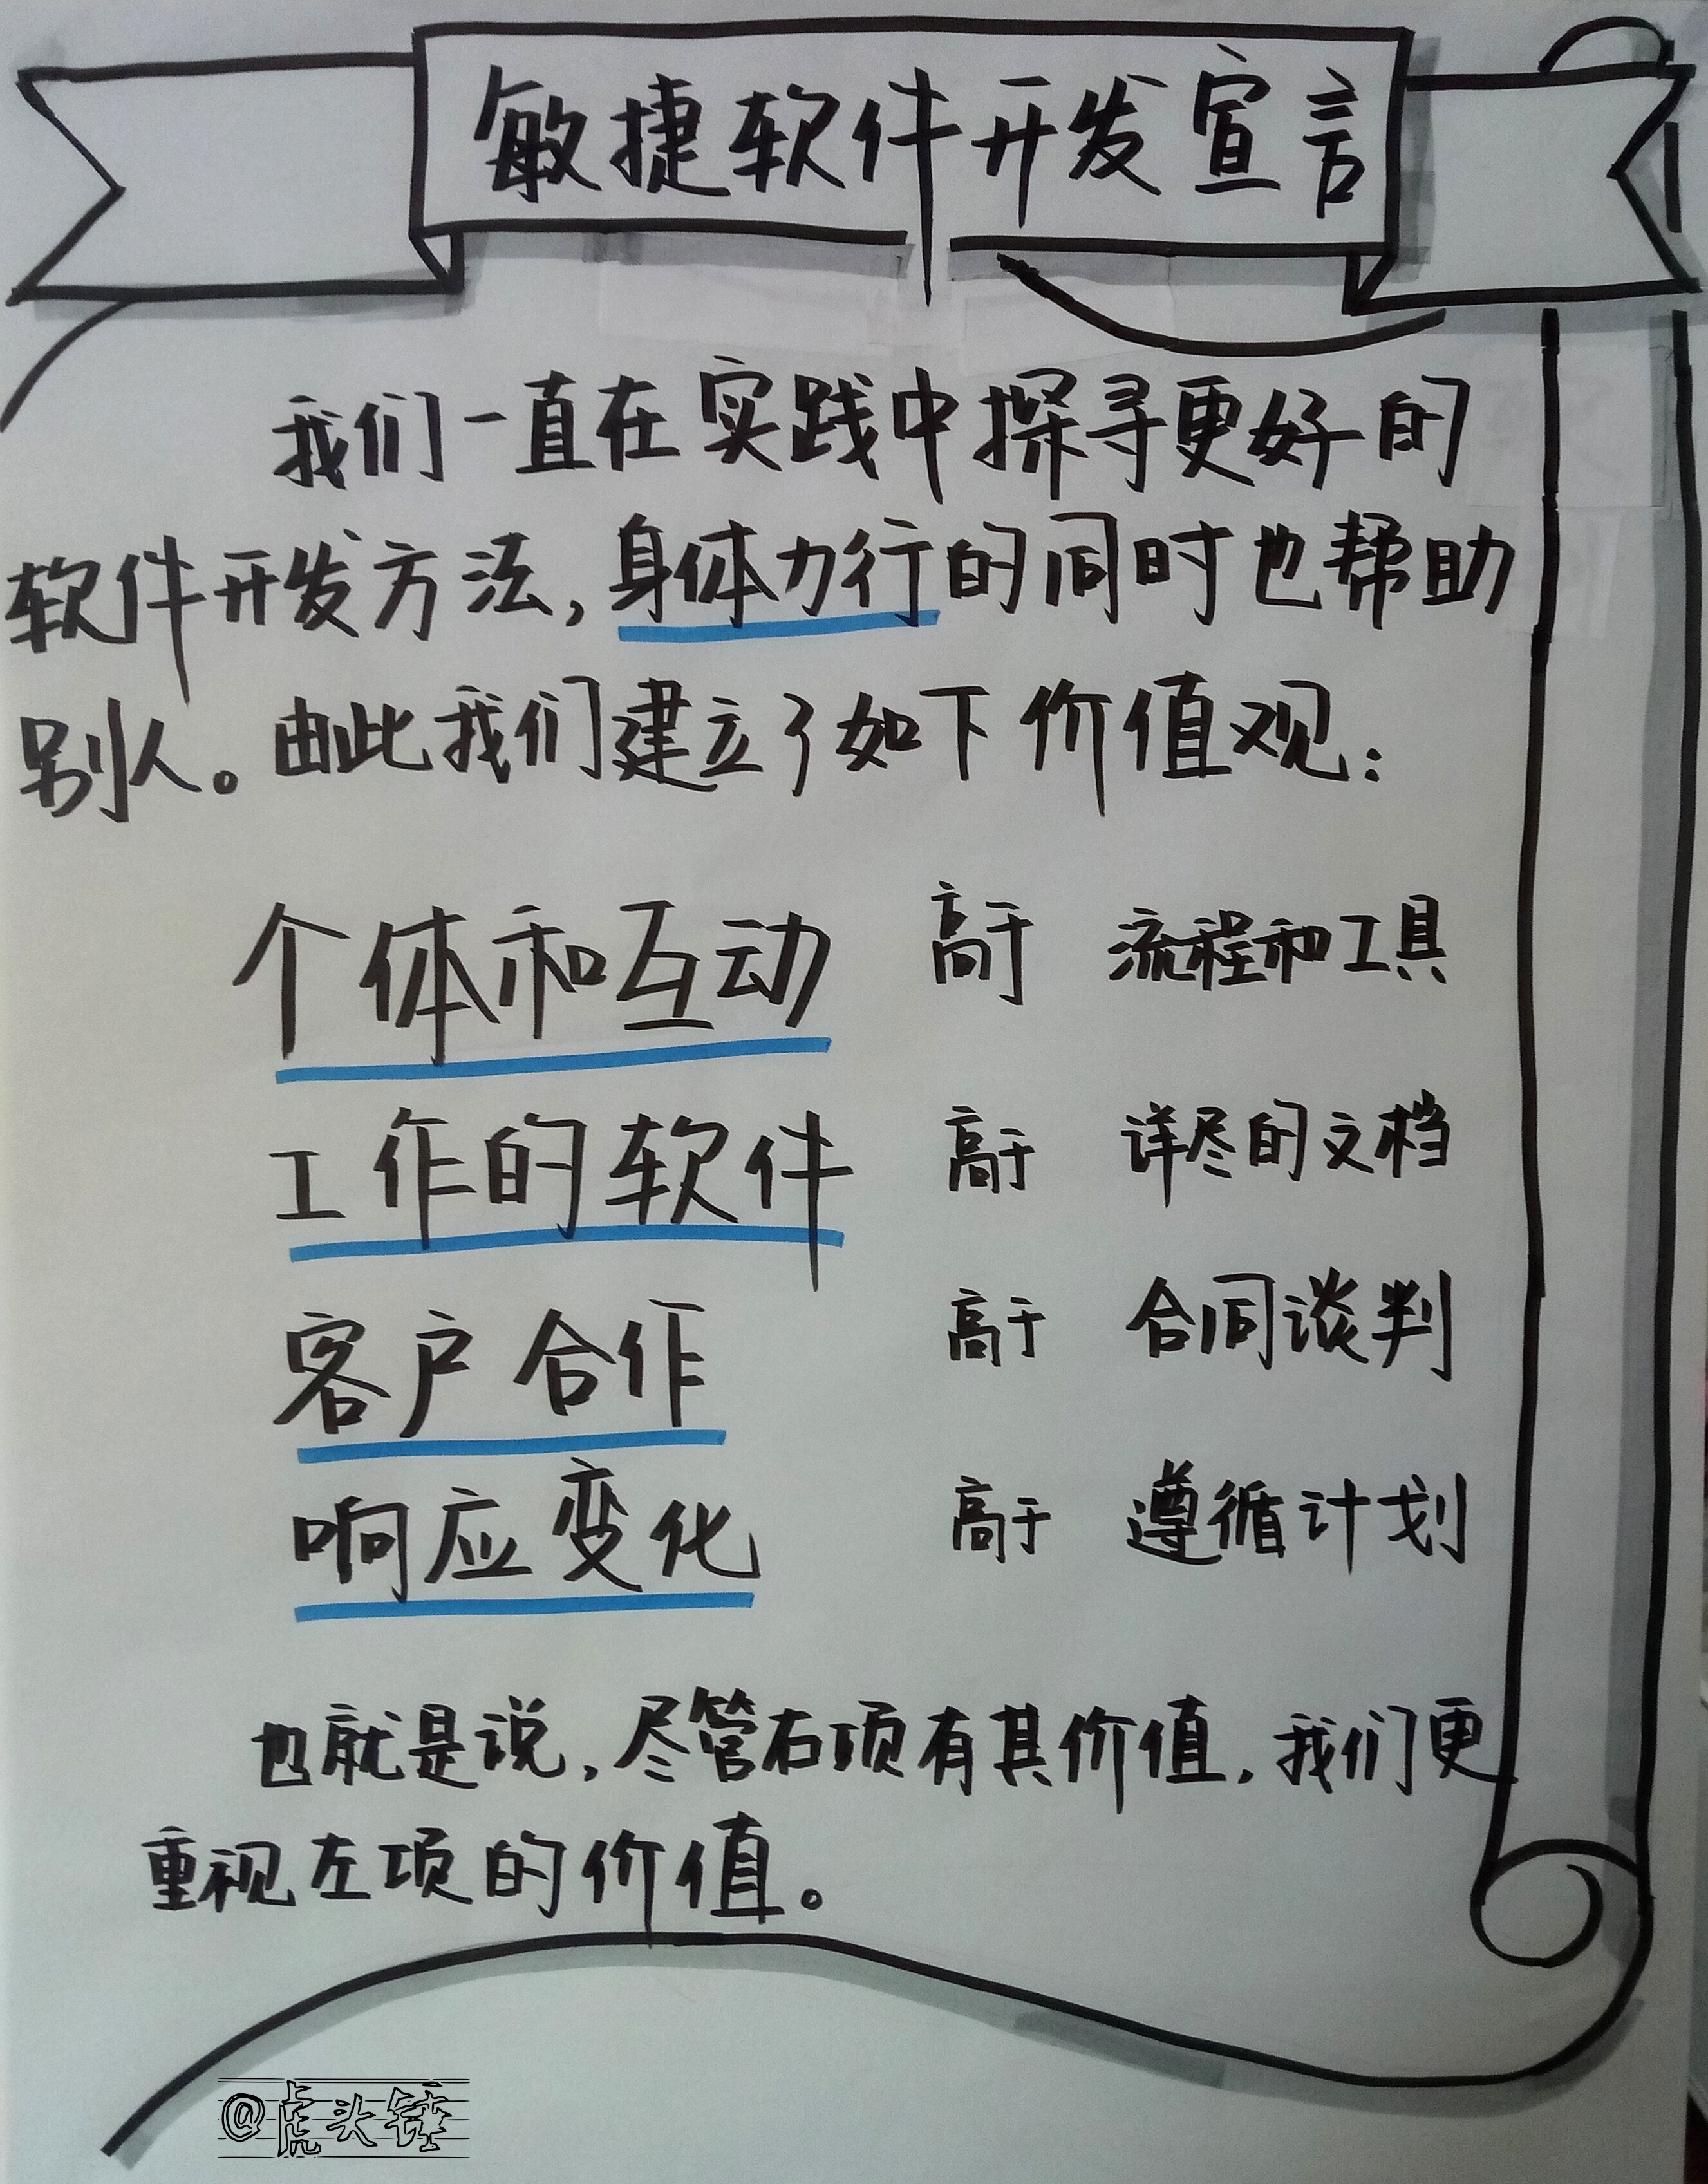 敏捷软件开发宣言
我们一直在实践中探寻更好的
软件开发方法,身体力行的同时也帮助
别人。由此我们建立了如下价值观:
个体和互动 高于 流程和工具
工作的软件 高于 详尽的文档
客户合作 高于 合同谈判
响应变化 高于 遵循计划
也就是说,尽管右项有其价值,我们更
重视左项的价值。
@虎头锤